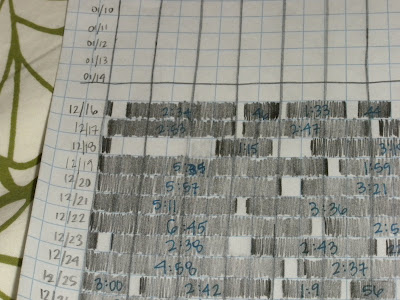 01/10
01/11
01/12
01/13
01/14
12/16
12/17 2:53 2:47
12/18 1:15
12/19 5:39 1:59
12/20 5:57 3:21
12/21 5:11 3:36
12/22 6:45
12/23 2:38 2:43
12/24 4:58 2:37
12/25 3:00 2:42 1:9 56